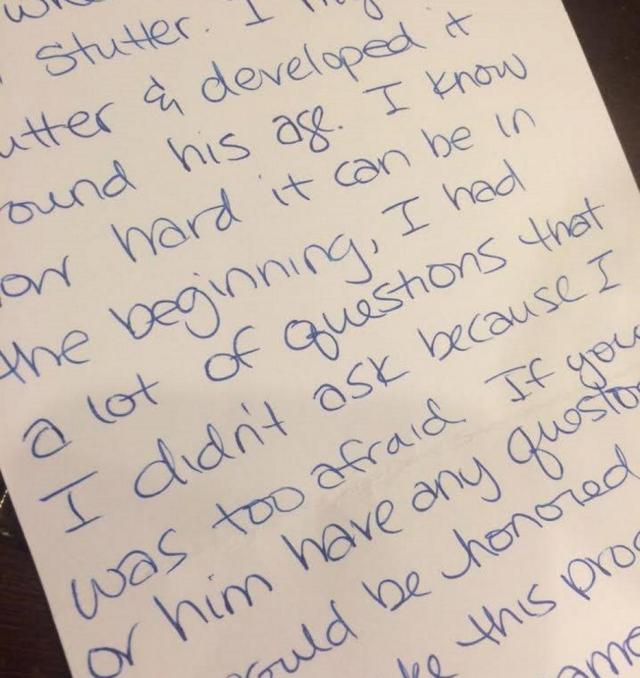 stutter. I
utter & developed it
ound his age. I know
ow hard it can be in
the beginning, I had
a lot of questions that
I didn't ask because I
was too afraid. If you
or him have any question
ould be honored
ke this proc
ame